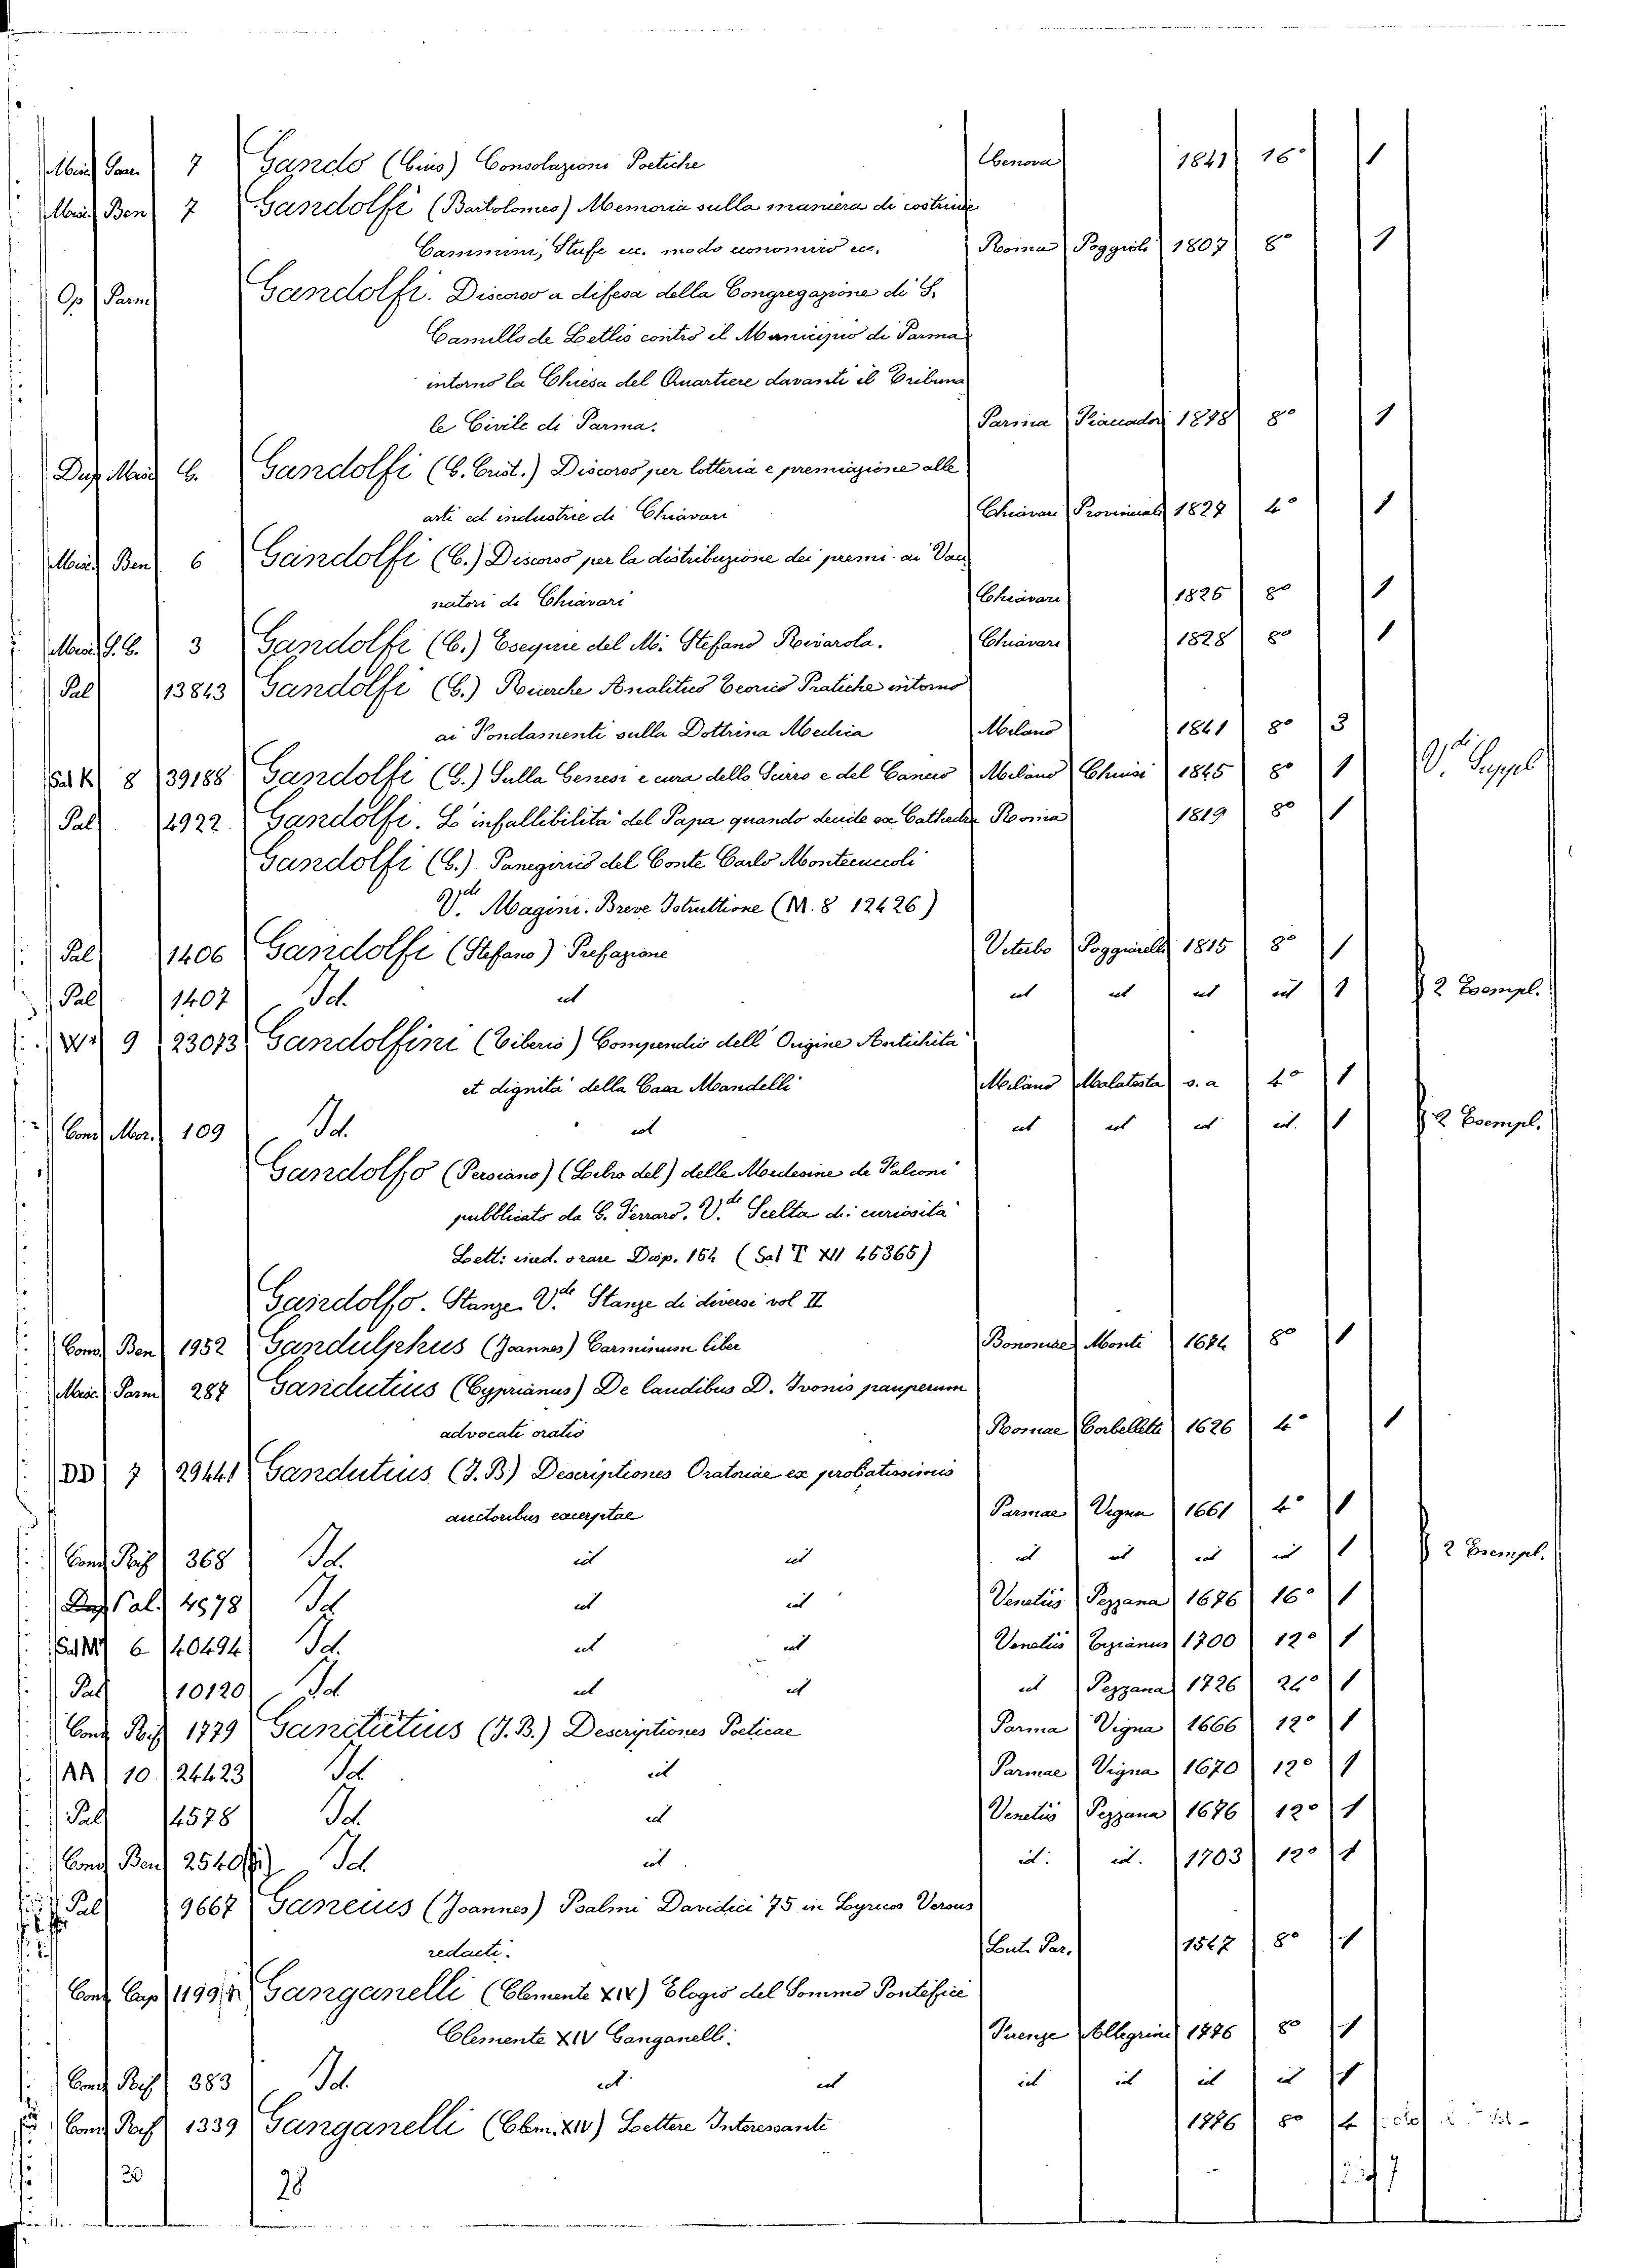 Misc Gen. 7 Gando (Gius) Consolazioni Poetiche Genova 1841 16° 1
Misc Ben 7 Gandolfi (Bartolomeo) Memoria sulla maniera di costruire
Cammini, Stufe ecc. modo economico ec. Roma Poggioli 1807 8° 1
Op Parm Gandolfi. Discorso a difesa della Congregazione di S.
Camillo de Lellis contro il Municipio di Parma
intorno la Chiesa del Quartiere davanti il Tribuna
le Civile di Parma. Parma Fiaccadori 1878 8° 1
Dup Misc G. Gandolfi (G. Crist.) Discorso per lotteria e premiazione alle
arti ed industrie di Chiavari Chiavari Provinciale 1827 4° 1
Misc. Ben 6 Gandolfi (G.) Discorso per la distribuzione dei premi ai Vac
natori di Chiavari Chiavari 1826 8° 1
Misc. G. G. 3 Gandolfi (G.) Esequie del M. Stefano Rivarola. Chiavari 1828 8° 1
Pal 13843 Gandolfi (G.) Ricerche Analitico Teorico Pratiche intorno
ai Fondamenti sulla Dottrina Medica Milano 1841 8° 3
Sal K 8 39188 Gandolfi (G.) Sulla Genesi e cura dello Scirro e del Cancro Milano Chiusi 1845 8° 1 V.de Suppl
Pal 4922 Gandolfi. L'infallibilità del Papa quando decide ex Cathedra Roma 1819 8° 1
Gandolfi (G.) Panegirico del Conte Carlo Montecuccoli
V.de Magini. Breve Istruttione (M. 8 12426)
Pal 1406 Gandolfi (Stefano) Prefazione Viterbo Poggiarelli 1815 8° 1
Pal 1407 Id. id id id id id 1 2 Esempl.
9 23073 Gandolfini (Tiberio) Compendio dell'Origine Antichità
et dignità della Casa Mandelli Milano Malatesta s. a 4° 1
Cons. Mor. 109 Id. id id id id id. 1 2 Esempl.
Gandolfo (Persiano) (Libro del) delle Medesine de Falconi
pubblicato da G. Ferraro. V.de Scelta di curiosità
Lett: ined. o rare Disp. 154 (Sal T XII 45365)
Gandolfo. Stanze. V.de Stanze di diversi vol II
Cons. Ben 1952 Gandulphus (Joannes) Carminum liber Bononiae Monti 1684 8° 1
Misc. Parm 287 Gandutius (Cyprianus) De laudibus D. Ivonis pauperum
advocati oratio Romae Corbelletti 1626 4° 1
DD 7 29441 Gandutius (J. B) Descriptiones Oratoriae ex probatissimis
auctoribus excerptae Parmae Vigna 1661 4° 1
Cons Ris 368 Id. id id id id id id 1 2 Esempl.
Pal. 4578 Id id id Venetiis Pezzana 1676 16° 1
Sal M 6 40494 Id. id id Venetiis Tizianus 1700 12° 1
Pal 10120 Id id id id Pezzana 1726 24° 1
Cons Ris 1779 Gandutius (J. B.) Descriptiones Poeticae Parma Vigna 1666 12° 1
AA 10 24423 Id id Parmae Vigna 1670 12° 1
Pal 4578 Id. id Venetiis Pezzana 1676 12° 1
Cons Ben 2540 Id id id. id. 1703 12° 1
Pal 9667 Ganeius (Joannes) Psalmi Davidici 75 in Lyricos Versus
redacti. Lut. Par. 1547 8° 1
Cons Cap 1199 Ganganelli (Clemente XIV) Elogio del Sommo Pontefice
Clemente XIV Ganganelli. Firenze Allegrini 1776 8° 1
Cons Ris 383 Id. id. id id id id id 1
Cons Ris 1339 Ganganelli (Clem. XIV) Lettere Interessanti 1776 8° 4
30 28 7